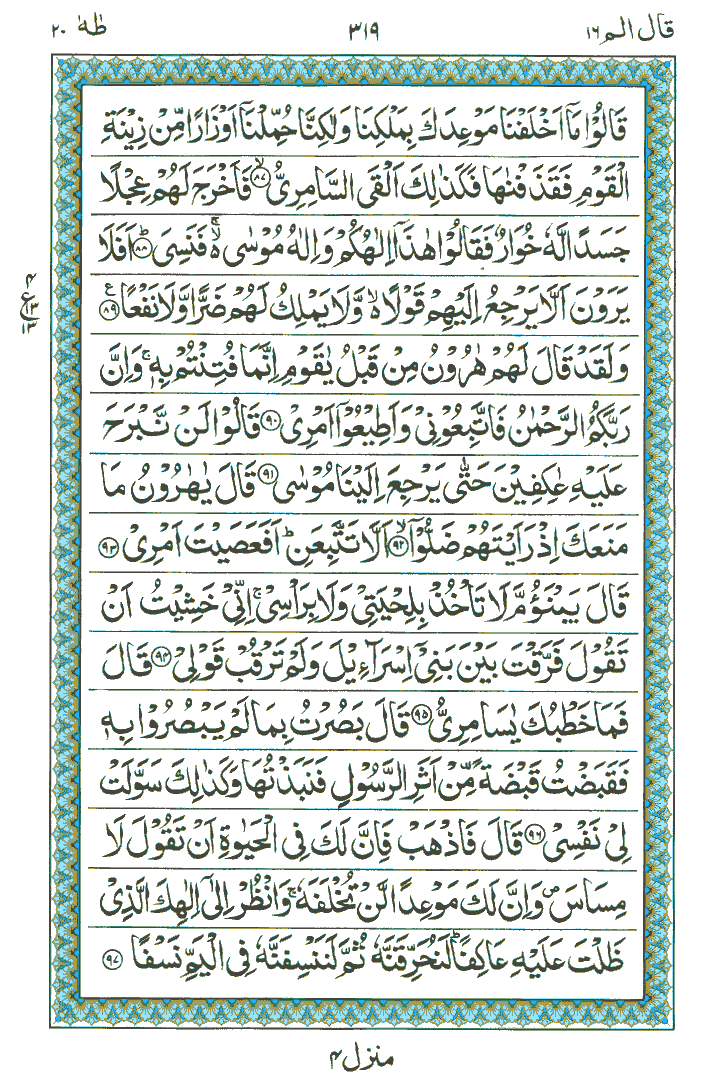 قال الم ١٦ ٣١٩ طٰهٰ ٢٠
قَالُوْا مَآ اَخْلَفْنَا مَوْعِدَكَ بِمَلْكِنَا وَلٰكِنَّا حُمِّلْنَآ اَوْزَارًا مِّنْ زِيْنَةِ
الْقَوْمِ فَقَذَفْنٰهَا فَكَذٰلِكَ اَلْقَى السَّامِرِيُّ ۙ‏﴿۸۷﴾ فَاَخْرَجَ لَهُمْ عِجْلًا
جَسَدًا لَّهٗ خُوَارٌ فَقَالُوْا هٰذَآ اِلٰهُكُمْ وَاِلٰهُ مُوْسٰى ۬ۚ فَنَسِىَ ؕ‏﴿۸۸﴾ اَفَلَا
يَرَوْنَ اَلَّا يَرْجِعُ اِلَيْهِمْ قَوْلًا ۙ۬ وَّلَا يَمْلِكُ لَهُمْ ضَرًّا وَّلَا نَفْعًا ‏﴿۸۹﴾ ع
٤
ع ١٣
١٣
وَلَقَدْ قَالَ لَهُمْ هٰرُوْنُ مِنْ قَبْلُ يٰقَوْمِ اِنَّمَا فُتِنْتُمْ بِهٖ ۚ وَاِنَّ
رَبَّكُمُ الرَّحْمٰنُ فَاتَّبِعُوْنِىْ وَاَطِيْعُوْٓا اَمْرِىْ ‏﴿۹۰﴾ قَالُوْا لَنْ نَّبْرَحَ
عَلَيْهِ عٰكِفِيْنَ حَتّٰى يَرْجِعَ اِلَيْنَا مُوْسٰى ‏﴿۹۱﴾ قَالَ يٰهٰرُوْنُ مَا
مَنَعَكَ اِذْ رَاَيْتَهُمْ ضَلُّوْٓا ۙ‏﴿۹۲﴾ اَلَّا تَتَّبِعَنِ ؕ اَفَعَصَيْتَ اَمْرِىْ ‏﴿۹۳﴾
قَالَ يَبْنَؤُمَّ لَا تَاْخُذْ بِلِحْيَتِىْ وَلَا بِرَاْسِىْ ۚ اِنِّىْ خَشِيْتُ اَنْ
تَقُوْلَ فَرَّقْتَ بَيْنَ بَنِىْٓ اِسْرَآءِيْلَ وَلَمْ تَرْقُبْ قَوْلِىْ ‏﴿۹۴﴾ قَالَ
فَمَا خَطْبُكَ يٰسَامِرِىُّ ‏﴿۹۵﴾ قَالَ بَصُرْتُ بِمَا لَمْ يَبْصُرُوْا بِهٖ
فَقَبَضْتُ قَبْضَةً مِّنْ اَثَرِ الرَّسُوْلِ فَنَبَذْتُهَا وَكَذٰلِكَ سَوَّلَتْ
لِىْ نَفْسِىْ ‏﴿۹۶﴾ قَالَ فَاذْهَبْ فَاِنَّ لَكَ فِى الْحَيٰوةِ اَنْ تَقُوْلَ لَا
مِسَاسَ ۪ وَاِنَّ لَكَ مَوْعِدًا لَّنْ تُخْلَفَهٗ ۚ وَانْظُرْ اِلٰٓى اِلٰهِكَ الَّذِىْ
ظَلْتَ عَلَيْهِ عَاكِفًا ؕ لَنُحَرِّقَنَّهٗ ثُمَّ لَنَنْسِفَنَّهٗ فِى الْيَمِّ نَسْفًا ‏﴿۹۷﴾
منزل ٤